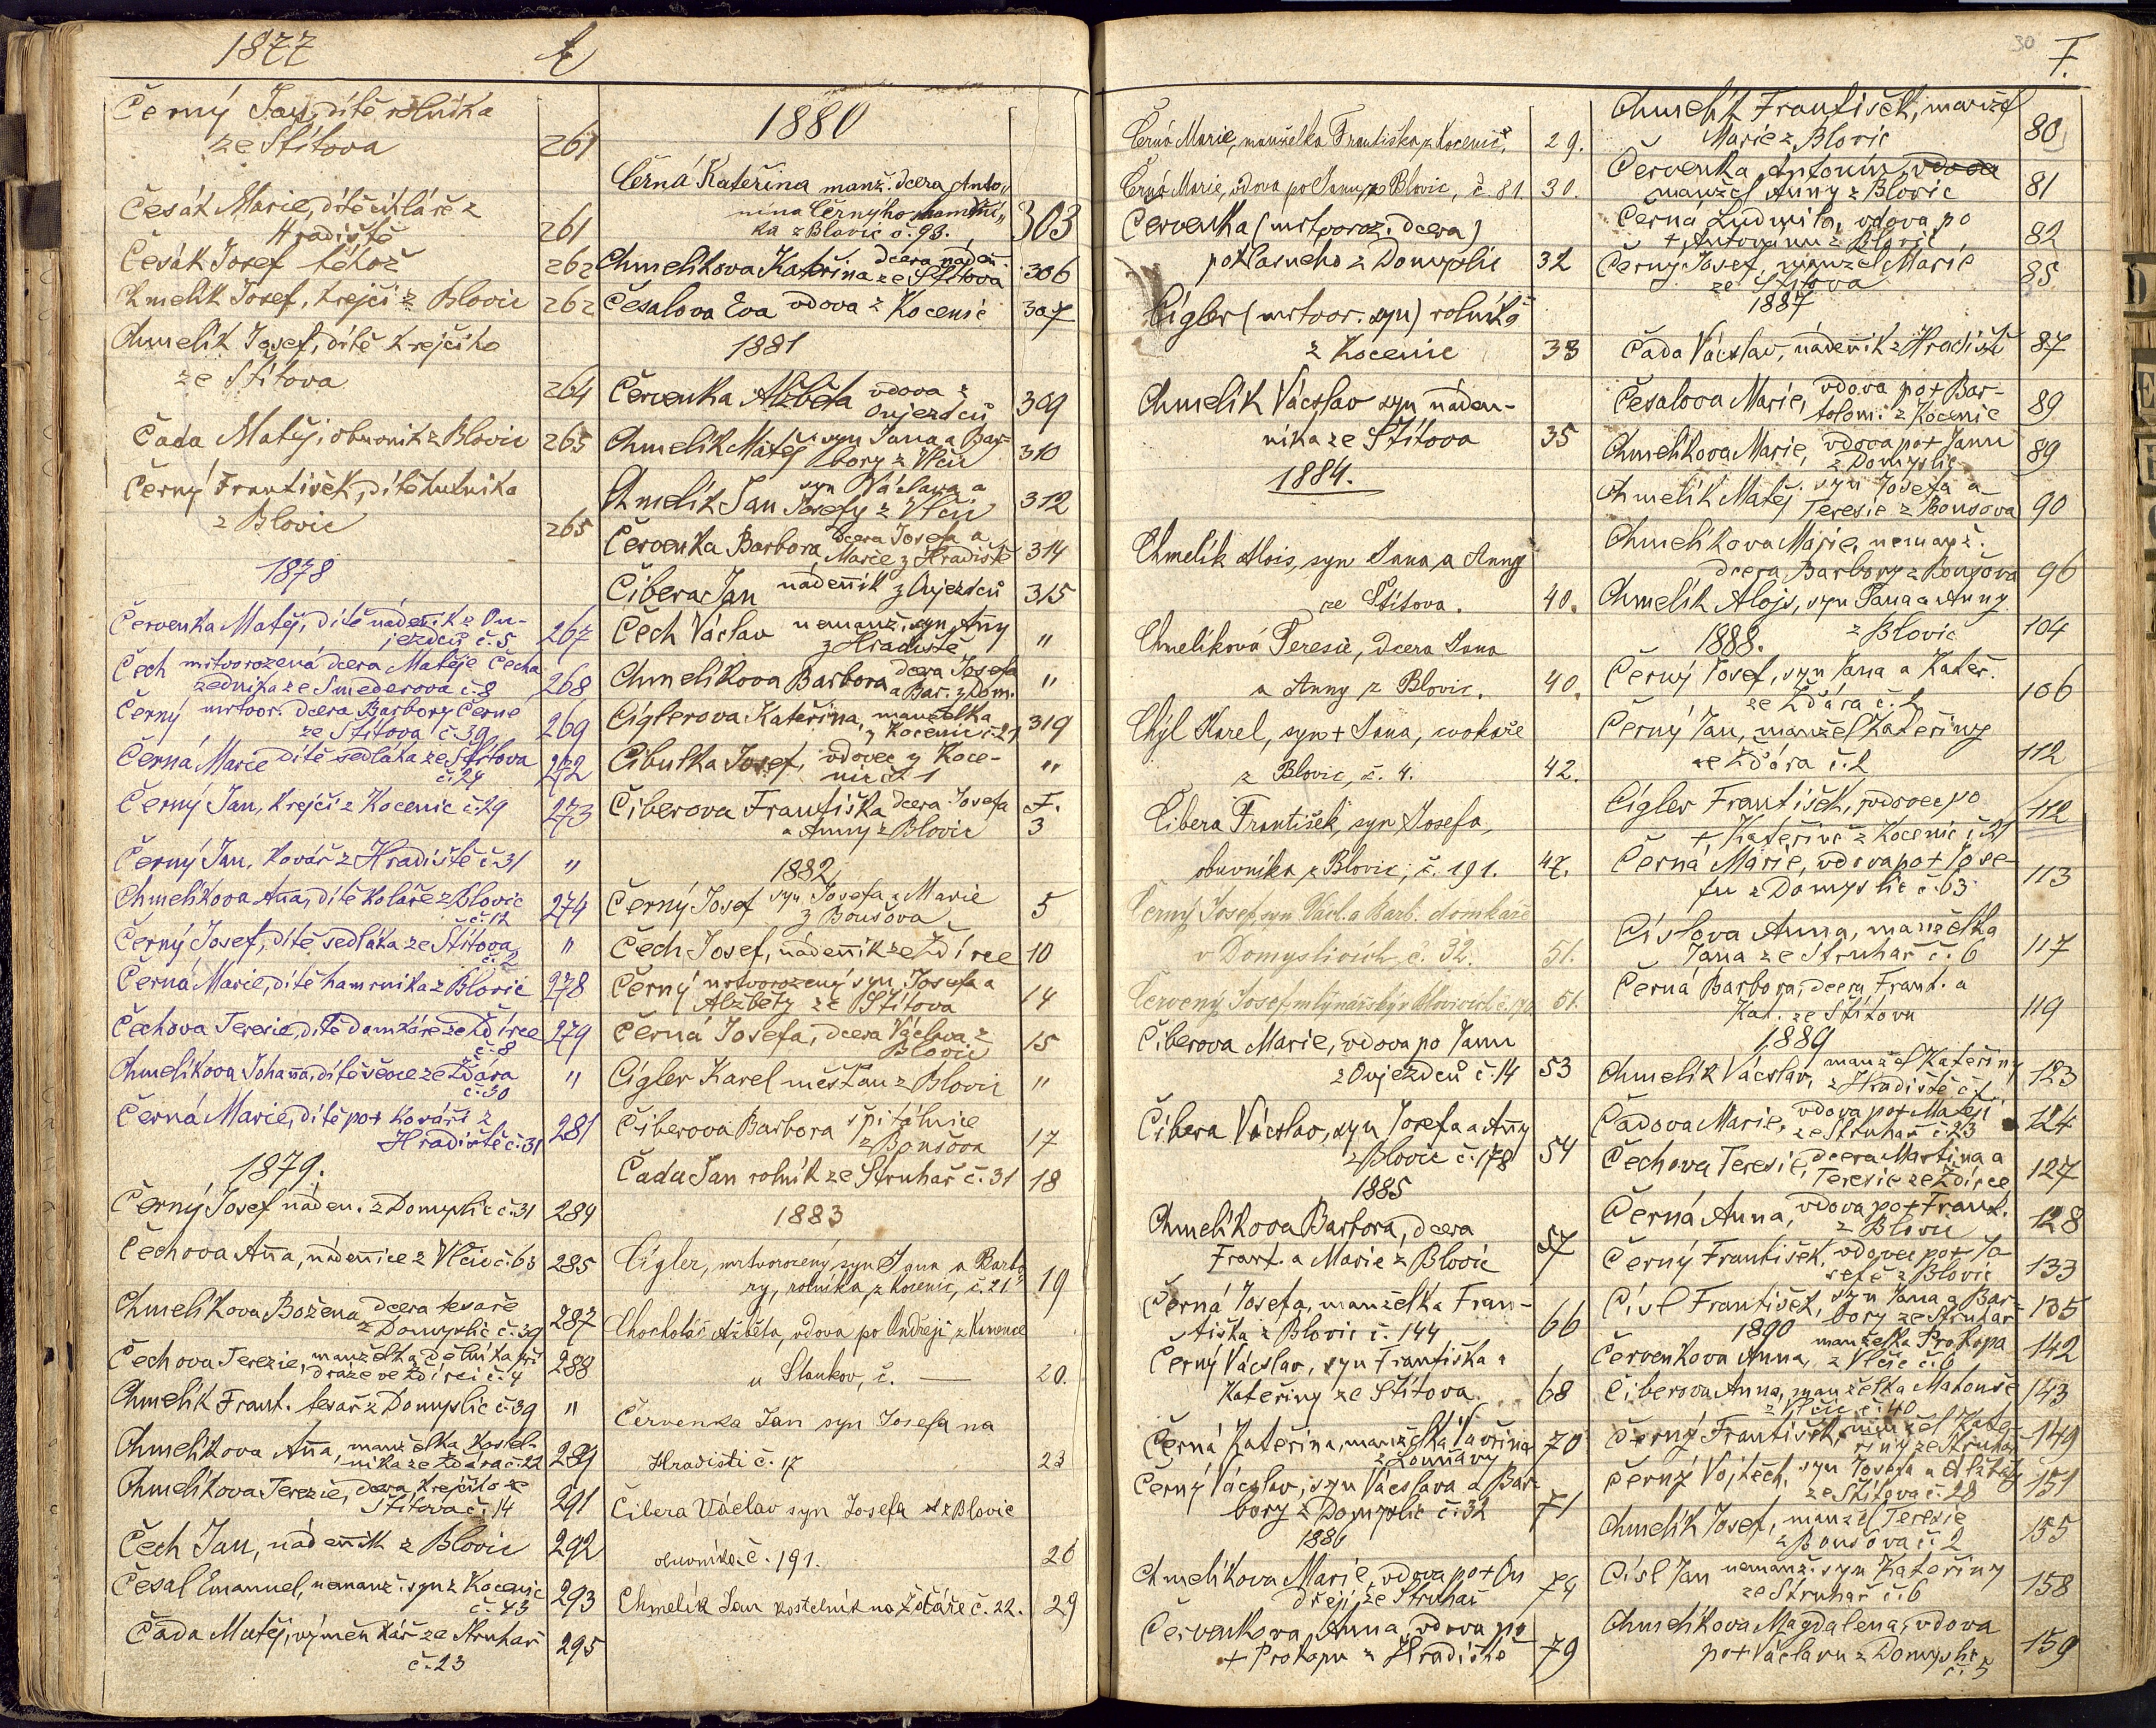 1877
Černý Jan, dítě rolníka
ze Štítova 261
Česák Marie, dítě cihláře z
Hradiště 261
Česák Josef téhož 262
Chmelík Josef, krejčí z Blovic 262
Chmelík Josef, dítě krejčího
ze Štítova 264
Čada Matěj, obuvník z Blovic 265
Černý František, dítě hutníka
z Blovic 265
1878
Červenka Matěj, dítě nádeník z Ou-
jezdců č. 5 267
Čech mrtvorozená dcera Matěje Čecha
zedníka ze Smederova č. 8 268
Černý mrtvor. dcera Barbory Černé
ze Štítova č. 39 269
Černá Marie dítě sedláka ze Štítova
č. 24 272
Černý Jan, krejčí z Kocenic č. 29 273
Černý Jan, kovář z Hradiště č. 31 "
Chmelíkova Anna, dítě koláře z Blovic
č. 12 274
Černý Josef, dítě sedláka ze Štítova
č. 2 "
Černá Marie, dítě hamrníka z Blovic 278
Čechova Teresie, dítě domkáře ze Ždírce
č. 8 279
Chmelíkova Johanna, dítě ševce ze Žďára
č. 30 "
Černá Marie, dítě po + kováři z
Hradiště č. 31 281
1879.
Černý Josef náden. z Domyslic č. 31 284
Čechova Anna, nádennice z Vlčic č. 63 285
Chmelíkova Božena dcera tesaře
z Domyslic č. 39 287
Čechova Terezie, manželka dělníka při
dráze ve Ždírci č. 4 288
Chmelík Frant. tesař z Domyslic č. 39 "
Chmelíkova Anna, manželka kostel-
níka ze Žďára č. 22 289
Chmelíkova Terezie, dcera krejčího ze
Štítova č. 14 291
Čech Jan, nádenník z Blovic 292
Česal Emanuel, nemanž. syn z Kocenic
č. 43 293
Čada Matěj, výměnkář ze Struhař
č. 23 295
1880
Černá Kateřina manž. dcera Anto„
nína Černýho hamrní„
ka z Blovic č. 93. 303
Chmelíkova Kateřina dcera náden.
ze Štítova 306
Česalova Eva vdova z Kocenic 307
1881
Červenka Alžběta vdova z
Oujezdců 309
Chmelík Matěj syn Jana a Bar-
bory z Vlčic 310
Chmelík Jan syn Václava a
Josefy z Vlčic 312
Červenka Barbora, dcera Josefa a
Marie z Hradiště 314
Čibera Jan nádenník z Oujezdců 315
Čech Václav nemanž. syn Anny
z Hradiště "
Chmelíkova Barbora dcera Josefa
a Bar. z Dom. "
Cíglerova Kateřina, manželka
z Kocenic č. 21 319
Cibulka Josef, vdovec z Koce-
nic č. 1 "
Čiberova Františka dcera Josefa
a Anny z Blovic F. 3
1882
Černý Josef syn Josefa a Marie
z Boušova 5
Čech Josef, nádenník ze Ždírce 10
Černý mrtvorozený syn Josefa a
Alžběty ze Štítova 14
Černá Josefa, dcera Václava z
Blovic 15
Cígler Karel měšťan z Blovic "
Čiberova Barbora špitálnice
z Boušova 17
Čada Jan rolník ze Struhař č. 31 18
1883
Cígler, mrtvorozený syn Jana a Barbo
ry, rolníka, z Kocenic, č. 21 19
Chocholáč Alžběta, vdova po Ondřeji z Kamence
u Stankov, č. — 20.
Červenka Jan syn Josefa na
Hradišti č. 17 23
Čibera Václav syn Josefa z Blovic
obuvníka č. 191. 26
Chmelík Jan kostelník na Žďáře č. 22. 29
30
F.
Černá Marie, manželka Františka, z Kocenic, 29.
Černá Marie, vdova po Janu, z Blovic, č. 81. 30.
Červenka (mrtvoroz. dcera)
pohlasného z Domyslic 32
Cígler (mrtvor. syn) rolníka
z Kocenic 33
Chmelík Václav syn náden-
níka ze Štítova 35
1884.
Chmelík Alois, syn Jana a Anny
ze Štítova. 40.
Chmelíková Teresie, dcera Jana
a Anny z Blovic. 40.
Chýl Karel, syn + Jana, cvokaře
z Blovic, č. 4. 42.
Čibera František, syn Josefa,
obuvníka z Blovic, č. 191. 47.
Černý Josef, syn Václ. a Barb. domkáře
v Domyslicích č. 32. 51.
Červený Josef mlynářský v Blovicích č. 51.
Čiberova Marie, vdova po Janu
z Oujezdců č. 14 53
Čibera Václav, syn Josefa a Anny
z Blovic č. 178 54
1885
Chmelíkova Barbora, dcera
Frant. a Marie z Blovic 57
Černá Josefa, manželka Fran-
tiška z Blovic č. 144 66
Černý Václav, syn Františka a
Kateřiny ze Štítova 68
Černá Kateřina, manželka Vavřína
z Louňavy 70
Černý Václav, syn Václava a Bar-
bory z Domyslic č. 32 71
1886
Chmelíkova Marie, vdova po + On
dřeji, ze Struhař 74
Červenkova Anna, vdova po
+ Prokopu z Hradiště 79
Chmelík František, manžel
Marie z Blovic 80
Červenka Antonín, vdova
manžel Anny z Blovic 81
Černá Ludmila, vdova po
+ Antonínu z Blovic 82
Černý Josef, manžel Marie
ze Štítova 85
1887
Čada Václav, nádenník z Hradiště 87
Česalova Marie, vdova po + Bar-
tolom. z Kocenic 89
Chmelíkova Marie, vdova po + Janu
z Domyslic 89
Chmelík Matěj syn Josefa a
Teresie z Boušova 90
Chmelíkova Marie, nemanž.
dcera Barbory z Boušova 96
Chmelík Alojs, syn Jana a Anny
z Blovic 104
1888.
Černý Josef, syn Jana a Kateř.
ze Žďára č. 2 106
Černý Jan, manžel Kateřiny
ze Žďára č. 2 112
Cígler František, vdovec po
+ Kateřině z Kocenic č. 21 112
Černá Marie, vdova po + Jose-
fu z Domyslic č. 63 113
Císlova Anna, manželka
Jana ze Struhař č. 6 117
Černá Barbora, dcera Frant. a
Kat. ze Štítova 119
1889
Chmelík Václav, manžel Kateřiny
z Hradiště č. 123
Čadova Marie, vdova po + Matěji
ze Struhař č. 23 124
Čechova Teresie, dcera Martina a
Teresie ze Ždírce 127
Černá Anna, vdova po + Frant.
z Blovic 128
Černý František, vdovec po + Jo
sefě z Blovic 133
Císl František, syn Jana a Bar-
bory ze Struhař 135
1890
Červenkova Anna, manželka Prokopa
z Vlčic č. 6 142
Čiberova Anna, manželka Matouše
z Vlčic č. 40 143
Černý František, manžel Kate
řiny ze Struhař 149
Černý Vojtěch, syn Josefa a Alžběty
ze Štítova č. 28 151
Chmelík Josef, manžel Teresie
z Boušova č. 2 155
Císl Jan nemanž. syn Kateřiny
ze Struhař č. 6 158
Chmelíkova Magdalena, vdova
po + Václavu z Domyslic
č. 5 159